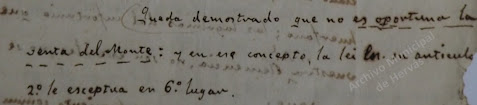 Queda demostrado que no es oportuna la
venta del Monte: y en ese concepto, la lei en su articulo
2.º le esceptua en 6.º lugar.
Archivo Municipal
de Hervás